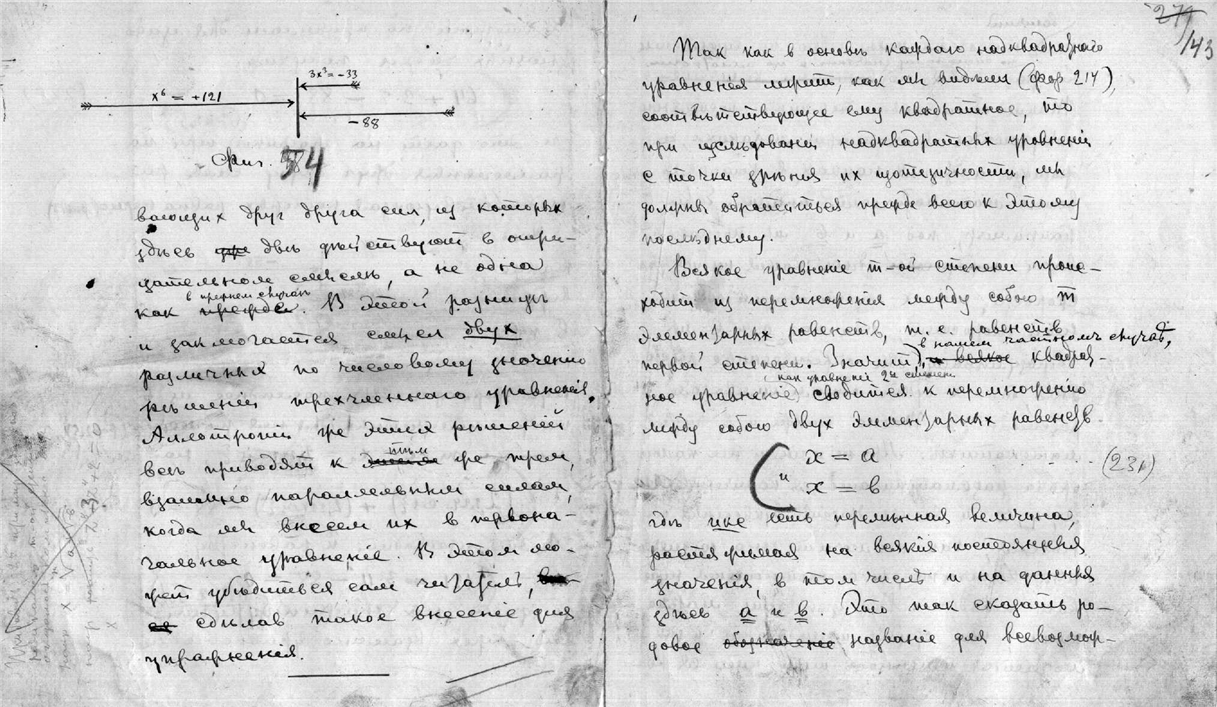 3x³ = -33
x⁶ = +121
-88
Фиг. 54
вающих друг друга сил, из которых
здѣсь двѣ дѣйствуют в отри-
цательном смыслѣ, а не одна
в прежнем случаѣ
как прежде. В этой разницѣ
и заключается смысл двух
различных по числовому значенію
рѣшеній трехчленнаго уравненія.
Аллотропіи же этих рѣшеній
тѣм
весь приводят к же трем,
взаимно параллельным силам,
когда мы внесем их в первона-
чальное уравненіе. В этом мо-
жет убѣдиться сам читатель,
сдѣлав такое внесеніе для
упражненія.
271
143
Так как в основѣ каждаго надквадратнаго
уравненія лежит, как мы видѣли (фор 217),
соотвѣтствующее ему квадратное, то
при изслѣдованіи надквадратных уравненій
с точки зрѣнія их изотезичности, мы
должны обратиться прежде всего к этому
послѣднему.
Всякое уравненіе m-ой степени проис-
ходит из перемноженія между собою m
элементарных равенств, т. е. равенств
в нашем частномъ случаѣ,
первой степени. Значит, всякое квадрат-
как уравненіе 2й степени
ное уравненіе сводится к перемноженію
между собою двух элементарных равенств.
x = a
и (231)
x = b
гдѣ икс есть перемѣнная величина,
растяжимая на всякія постоянныя
значенія, в том числѣ и на данныя
здѣсь a и b. Это так сказать ро-
довое обозначеніе названіе для всевозмож-